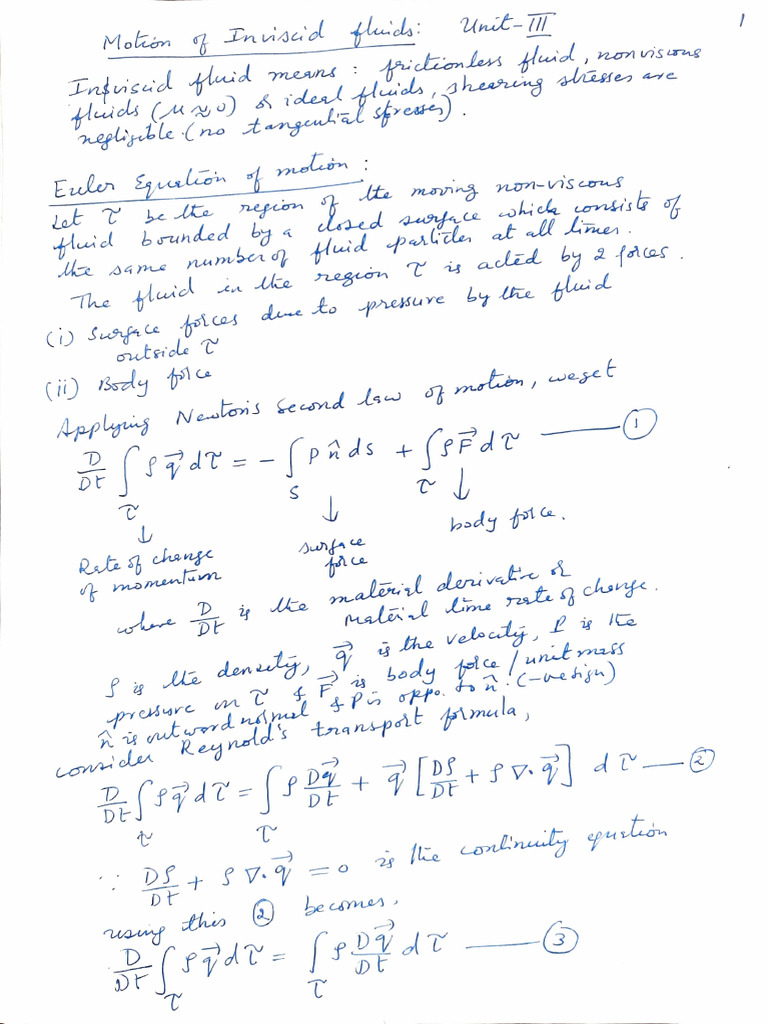 Motion of Inviscid fluids: Unit-III
1
Inviscid fluid means: frictionless fluid, nonviscous
fluids (μ≈0) or ideal fluids, shearing stresses are
negligible. (no tangential stresses).
Euler Equation of motion:
Let τ be the region of the moving non-viscous
fluid bounded by a closed surface which consists of
the same number of fluid particles at all times.
The fluid in the region τ is acted by 2 forces.
(i) Surface forces due to pressure by the fluid
outside τ
(ii) Body force
Applying Newton's second law of motion, we get
D/Dt ∫_τ ρ q⃗ dτ = - ∫_S p n̂ ds + ∫_τ ρ F⃗ dτ —— ①
↓ ↓ ↓
Rate of change of momentum
surface force
body force.
where D/Dt is the material derivative or
material time rate of change.
ρ is the density, q⃗ is the velocity, P is the
pressure on τ & F⃗ is body force/unit mass
n̂ is outword normal & P is oppo. to n̂. (-ve sign)
consider Reynold's transport formula,
D/Dt ∫_τ ρ q⃗ dτ = ∫_τ ρ Dq⃗/Dt + q⃗ [Dρ/Dt + ρ ∇·q⃗] dτ —— ②
∵ Dρ/Dt + ρ ∇·q⃗ = 0 is the continuity equation
using this ② becomes,
D/Dt ∫_τ ρ q⃗ dτ = ∫_τ ρ Dq⃗/Dt dτ —— ③